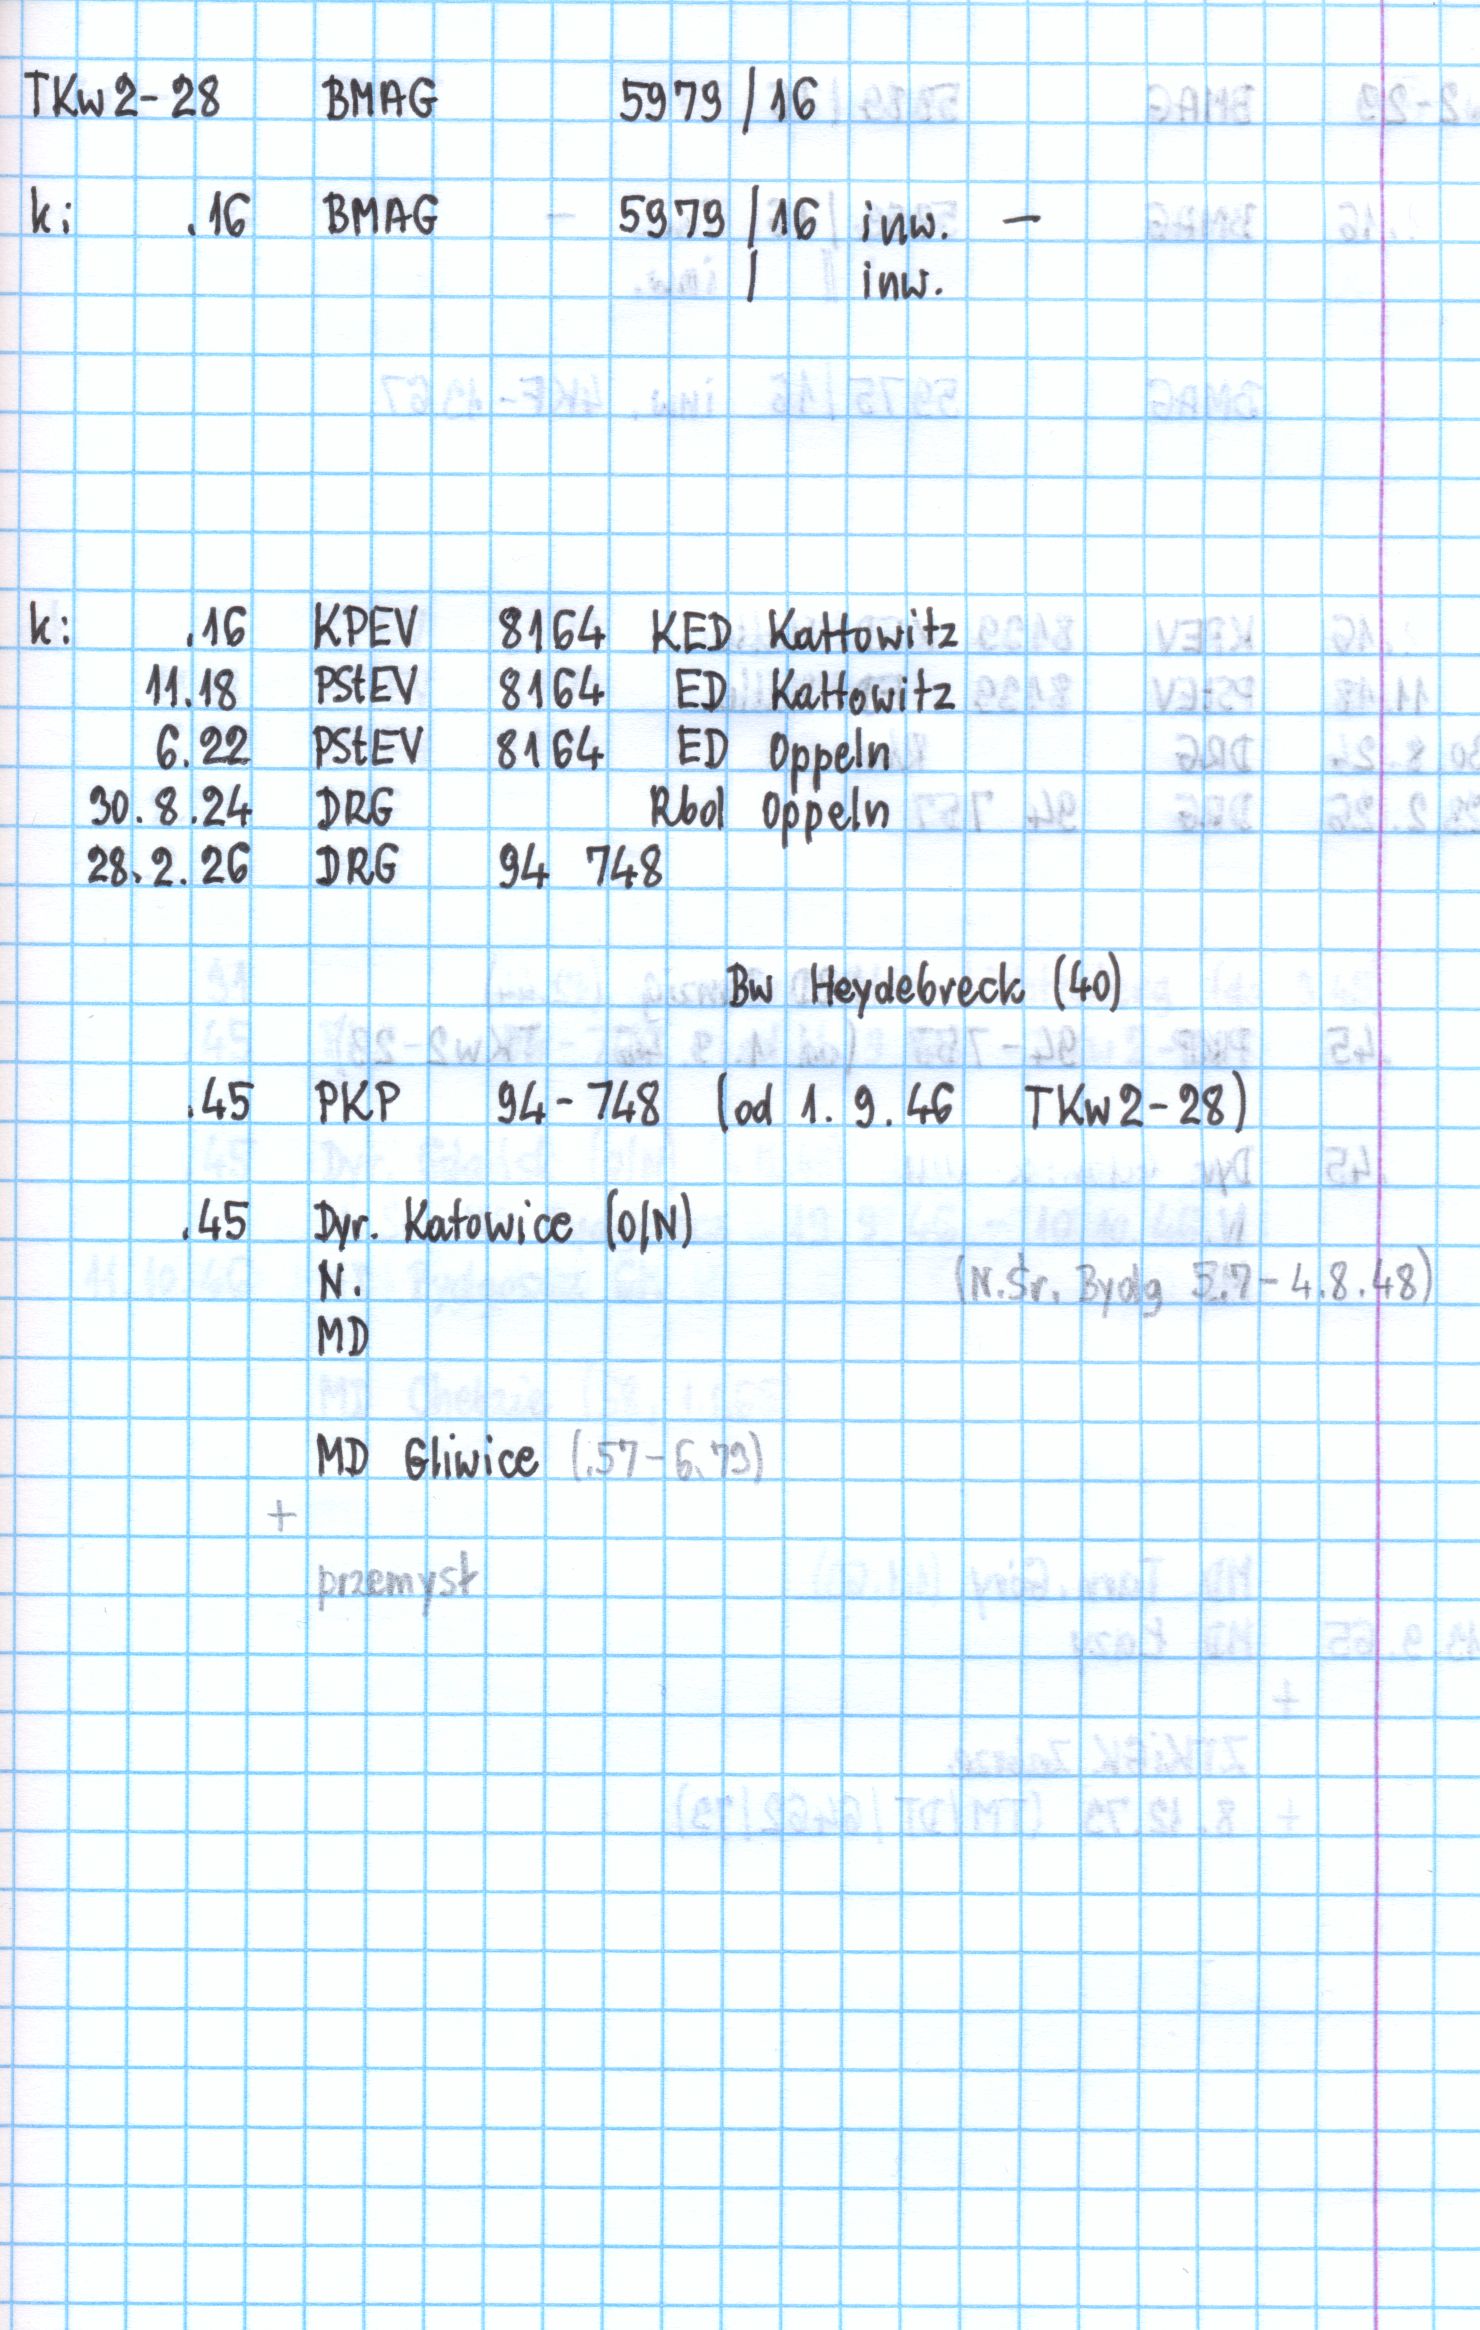 TKw2-28 BMAG 5979/16
k: .16 BMAG 5979/16 inw. —
/ inw.
k: .16 KPEV 8164 KED Kattowitz
11.18 PStEV 8164 ED Kattowitz
6.22 PStEV 8164 ED Oppeln
30.8.24 DRG Rbd Oppeln
28.2.26 DRG 94 748
Bw Heydebreck (40)
.45 PKP 94-748 (od 1.9.46 TKw2-28)
.45 Dyr. Katowice (O/N)
N. (N.Śr. Bydg 5.7-4.8.48)
MD
MD Gliwice (.57-6.73)
+
przemysł